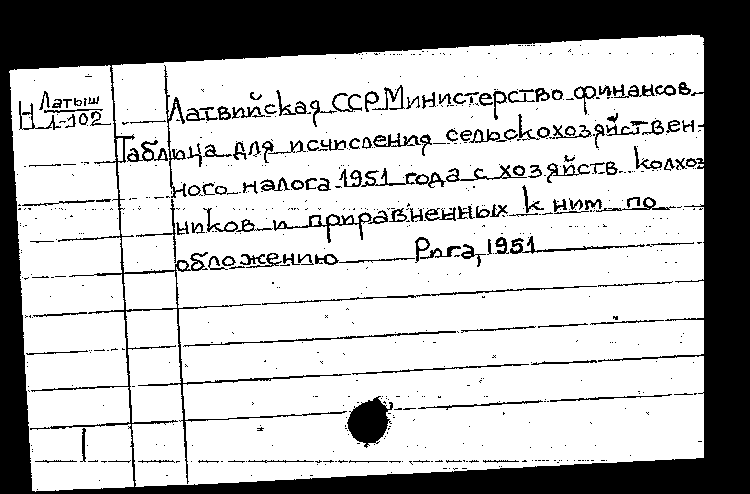 Н Латыш
1-102
Латвийская ССР Министерство финансов
Таблица для исчисления сельскохозяйствен-
ного налога 1951 года с хозяйств колхоз
ников и приравненных к ним по
обложению Рига, 1951